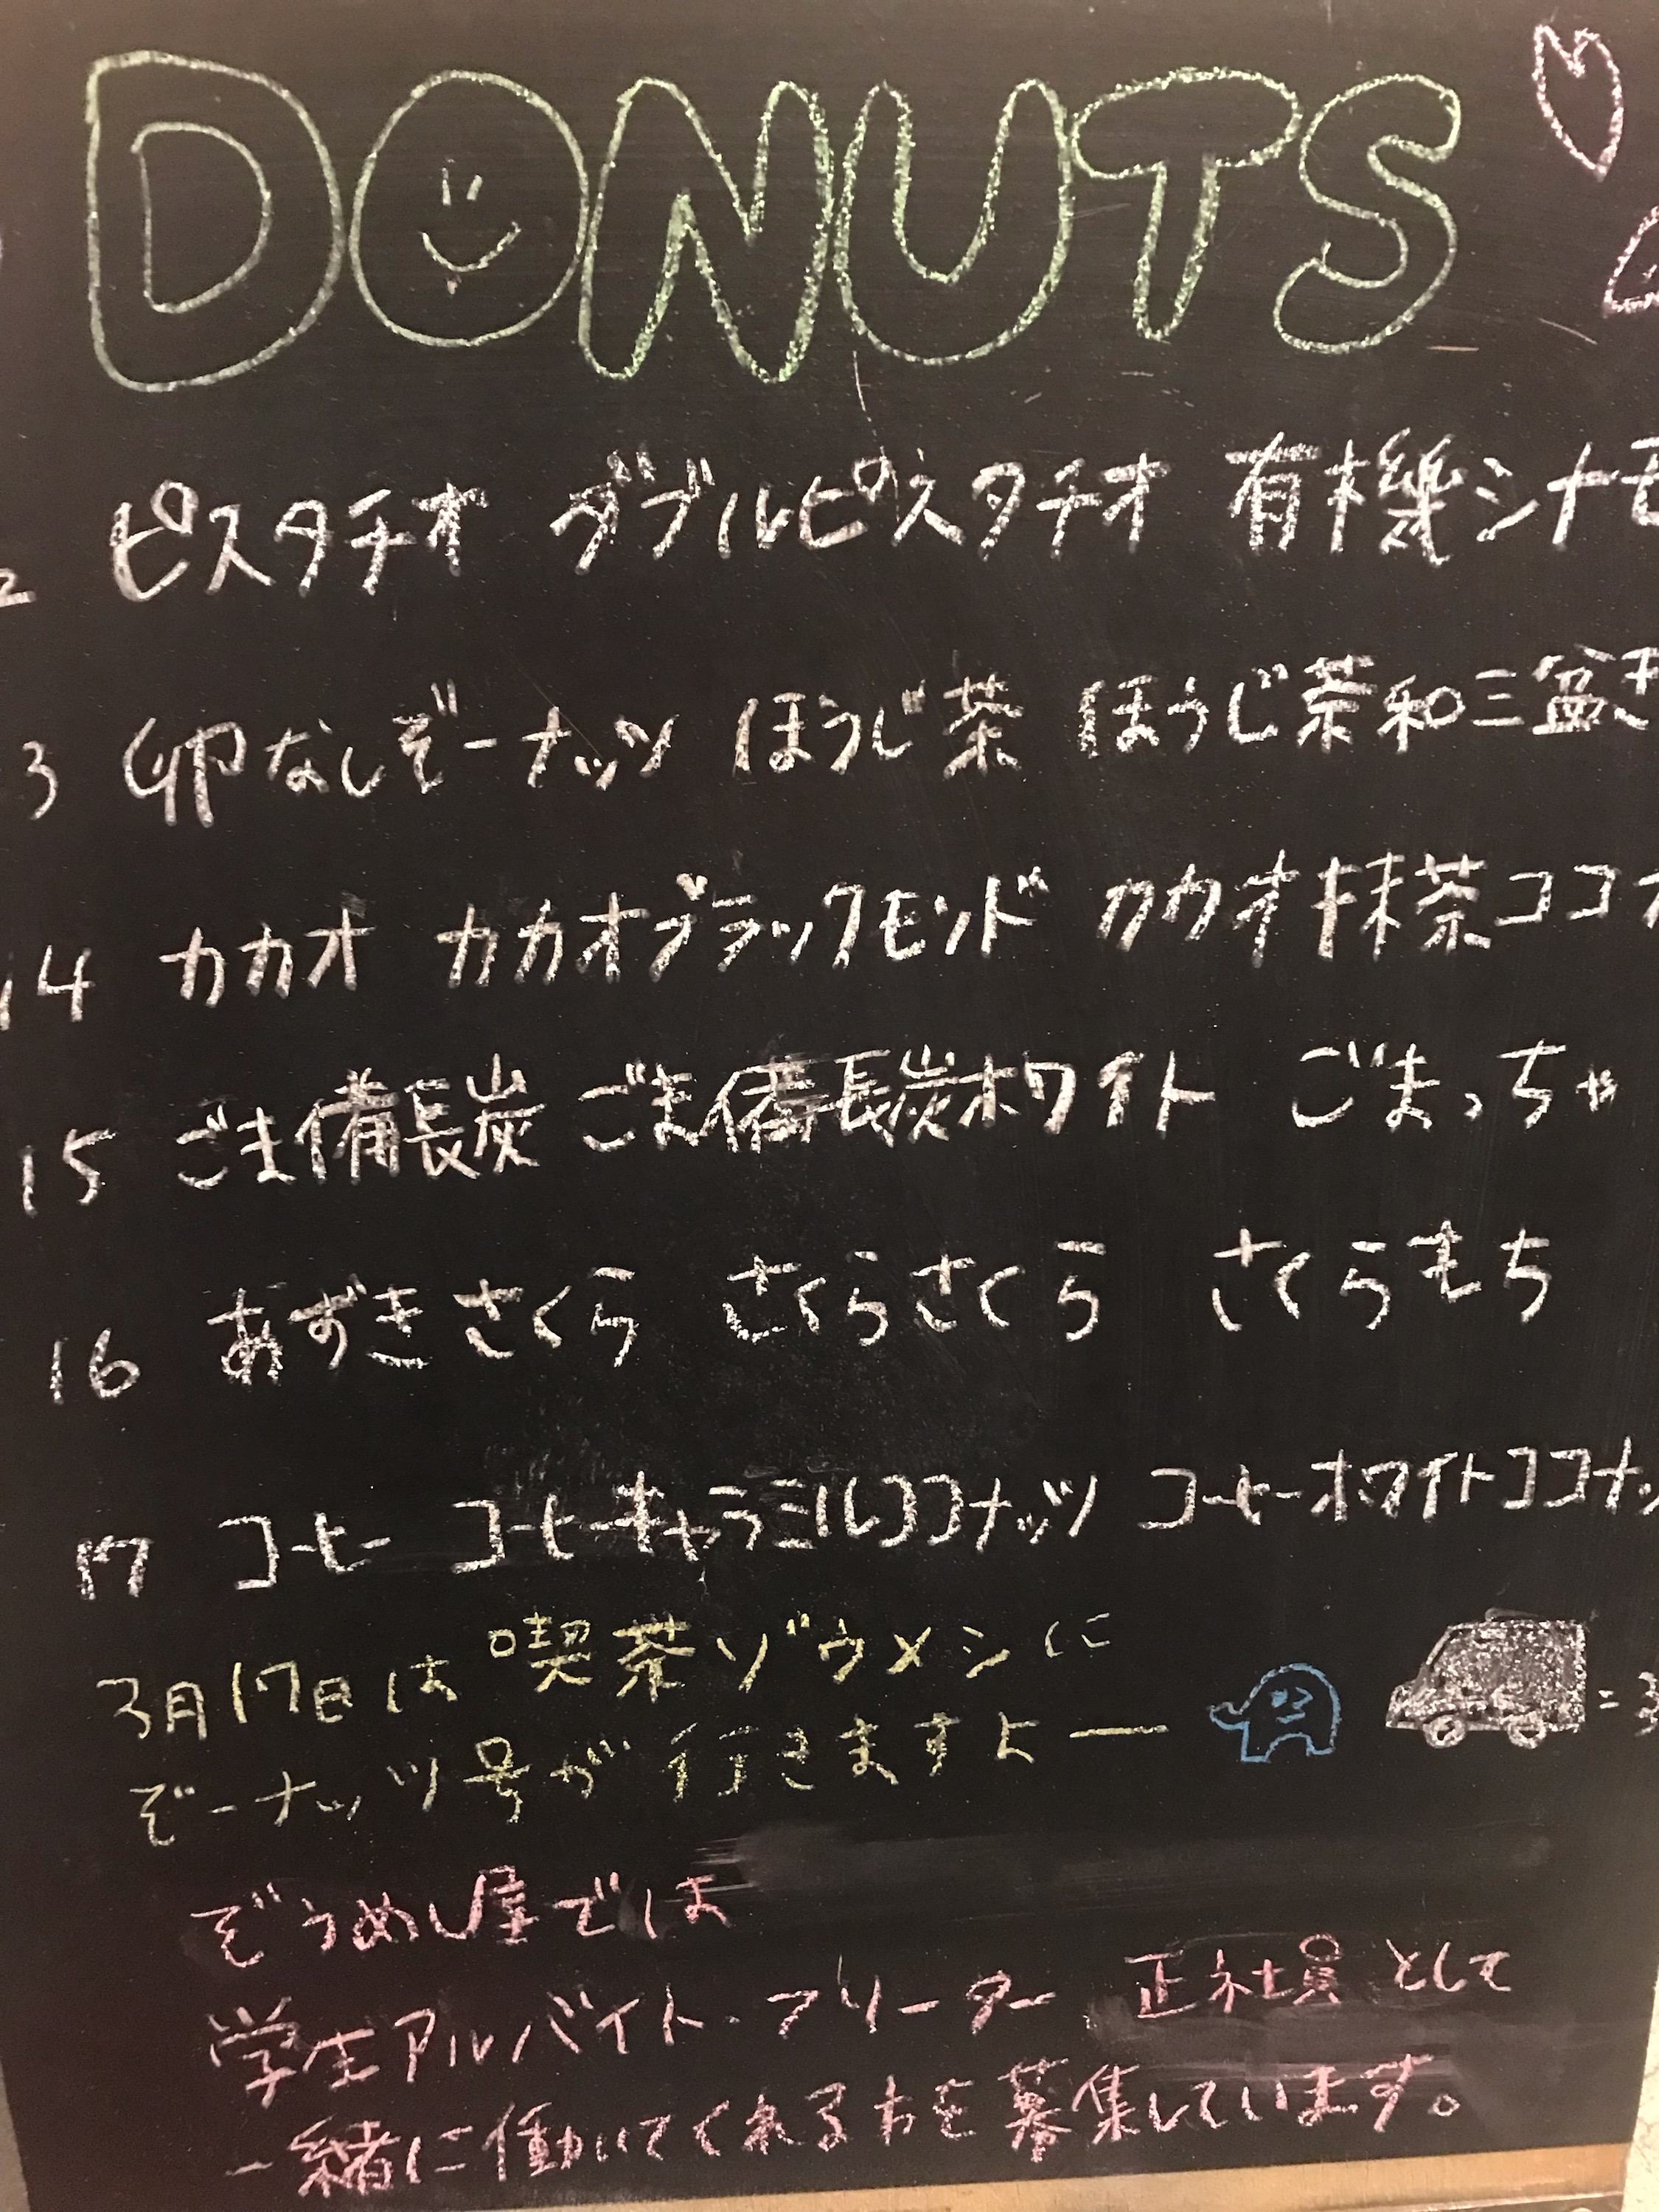 DONUTS
2 ピスタチオ ダブルピスタチオ 有機シナモ
3 卵なしぞーナッツ ほうじ茶 ほうじ茶和三盆き
14 カカオ カカオブラックモンド カカオ抹茶ココナ
15 ごま備長炭 ごま備長炭ホワイト ごまっちゃ
16 あずきさくら さくらさくら さくらもち
17 コーヒー コーヒーキャラミルココナッツ コーヒーホワイトココナッ
3月17日は喫茶ゾウメシに
ぞーナッツ号が行きますよー
ぞうめし屋では
学生アルバイト・フリーター 正社員として
一緒に働いてくれる方を募集しています。